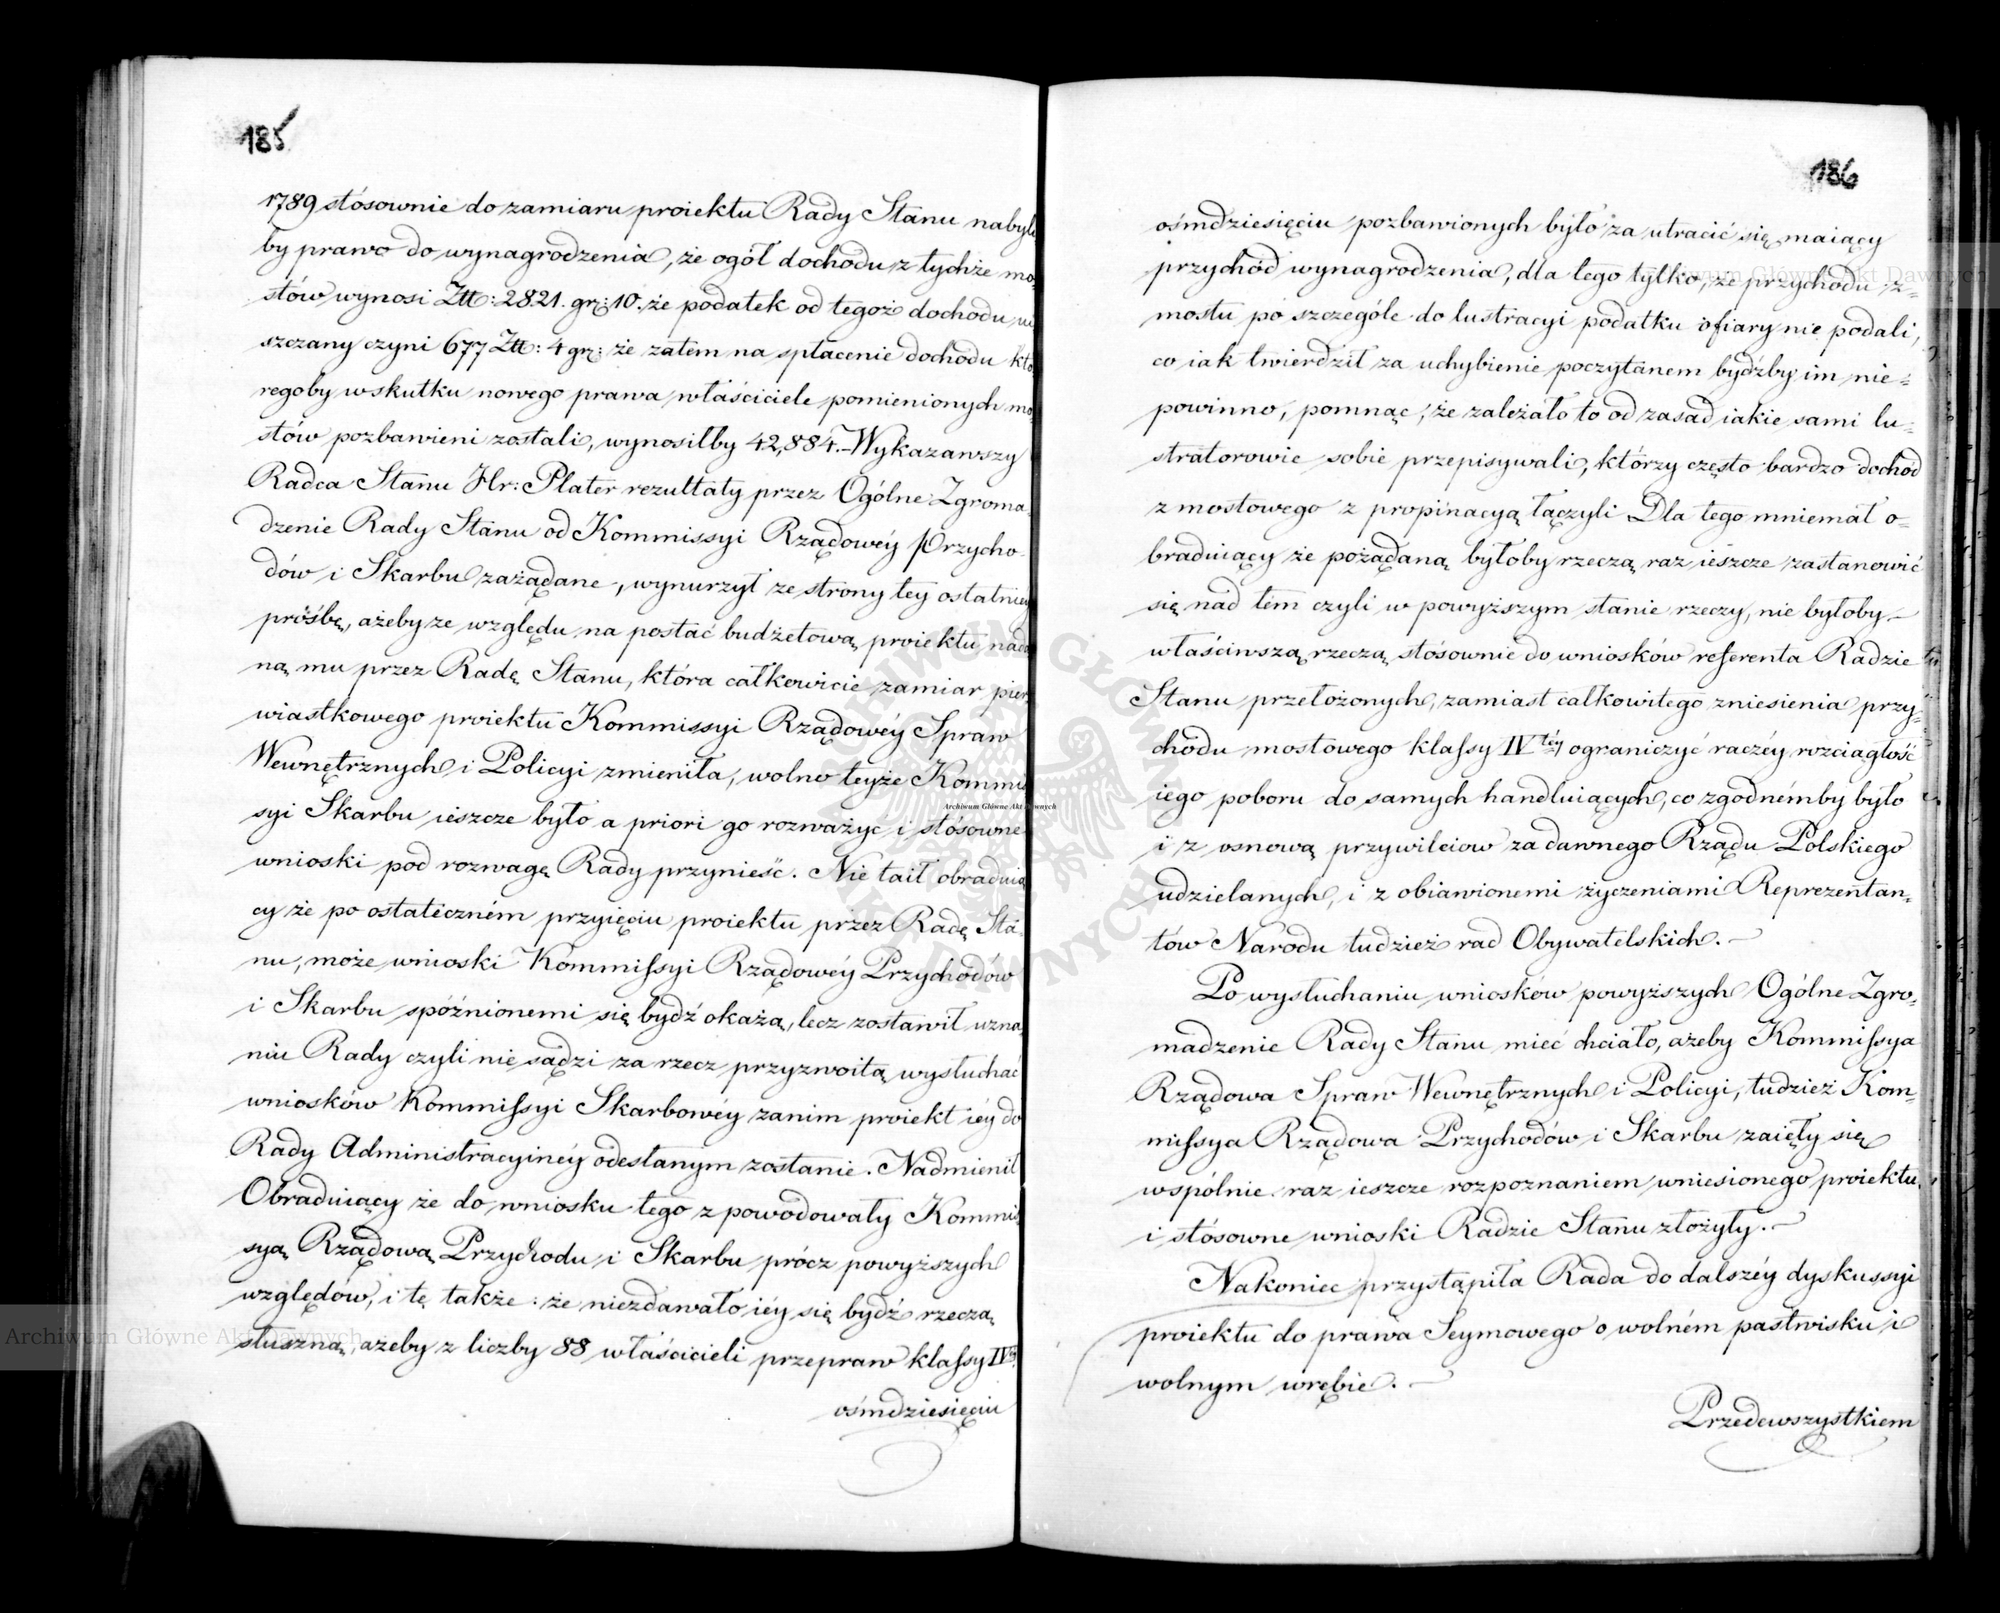 185
1789 stósownie do zamiaru proiektu Rady Stanu nabyło
by prawo do wynagrodzenia, że ogół dochodu z tychże mo-
stów wynosi Ztt: 2821. gr: 10. że podatek od tegoż dochodu
szczany czyni 677 Ztt: 4 gr: że zatem na spłacenie dochodu któ
regoby wskutku nowego prawa właściciele pomienionych mo
stów pozbawieni zostali, wynosiłby 42,884. – Wykazawszy
Radca Stanu Hr: Plater rezultaty przez Ogólne Zgroma-
dzenie Rady Stanu od Kommissyi Rządowéy Przycho-
dów i Skarbu zażądane, wynurzył ze strony tey ostatniey
prośbę, ażeby ze względu na postać budżetową proiektu nada
ną mu przez Radę Stanu, która całkowicie zamiar pier
wiastkowego proiektu Kommissyi Rządowéy Spraw
Wewnętrznych i Policyi zmieniła, wolno teyże Kommis
syi Skarbu ieszcze było a priori go rozważyć i stósowne
wnioski pod rozwagę Rady przynieść. Nie taił obraduią
cy że po ostateczném przyięciu proiektu przez Radę Sta-
nu, może wnioski Kommissyi Rządowéy Przychodów
i Skarbu spóźnionemi się bydź okażą, lecz zostawił uzna
niu Rady czyli nie sądzi za rzecz przyzwoitą wysłuchać
wniosków Kommissyi Skarbowéy zanim proiekt iéy do
Rady Administracyinéy odesłanym zostanie. Nadmienił
Obraduiący że do wniosku tego z powodowały Kommis
syą Rządową Przychodu i Skarbu prócz powyższych
względów, i tę także: że niezdawało iéy się bydź rzeczą
słuszną, ażeby z liczby 88 właścicieli przepraw klassy IVtéy
ośmdziesięciu
186
ośmdziesięciu pozbawionych było za utracić się maiący
przychód wynagrodzenia, dla tego tylko, że przychodu z-
mostu po szczególe do lustracyi podatku ofiary nie podali,
co iak twierdził za uchybienie poczytanem bydźby im nie-
powinno, pomnąc, że zależało to od zasad iakie sami lu-
stratorowie sobie przepisywali, którzy często bardzo dochod
z mostowego z propinacyą łączyli Dla tego mniemał o-
braduiący że pożądaną byłoby rzeczą raz ieszcze zastanowić
się nad tém czyli w powyższym stanie rzeczy, nie byłoby –
właściwszą rzeczą stósownie do wniosków referenta Radzie
Stanu przełożonych, zamiast całkowitego zniesienia przy-
chodu mostowego klassy IVtéy ograniczyć raczéy rozciągłość
iego poboru do samych handluiących, co zgodnémby było
i z osnową przywileiow za dawnego Rządu Polskiego
udzielanych, i z obiawionemi życzeniami Reprezentan-
tów Narodu tudzież rad Obywatelskich. –
Po wysłuchaniu wniosków powyższych Ogólne Zgro-
madzenie Rady Stanu mieć chciało, ażeby Kommissya
Rządowa Spraw Wewnętrznych i Policyi, tudzież Kom-
missya Rządowa Przychodów i Skarbu zaięły się
wspólnie raz ieszcze rozpoznaniem wniesionego proiektu
i stósowne wnioski Radzie Stanu złożyły. –
Nakoniec przystąpiła Rada do dalszéy dyskussyi
proiektu do prawa Seymowego o wolném pastwisku i
wolnym wrębie. –
Przedewszystkiem
Archiwum Główne Akt Dawnych
Archiwum Główne Akt Dawnych
Archiwum Główne Akt Dawnych